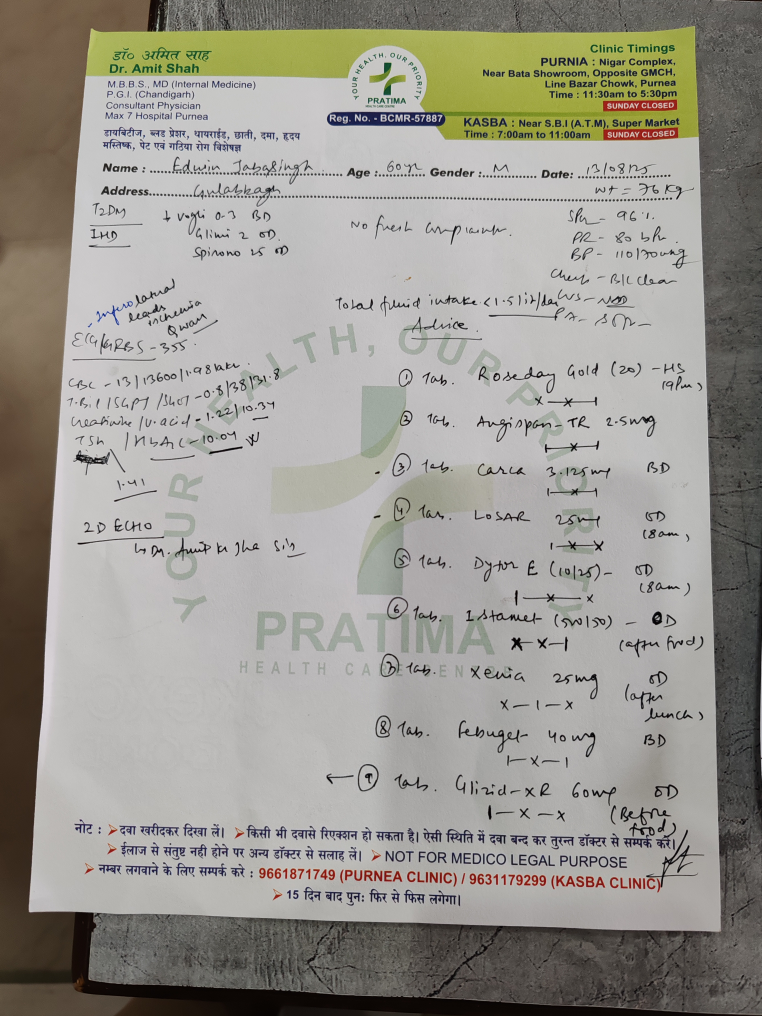 डॉ० अमित साह
Dr. Amit Shah
M.B.B.S., MD (Internal Medicine)
P.G.I. (Chandigarh)
Consultant Physician
Max 7 Hospital Purnea
डायबिटीज, ब्लड प्रेशर, थायराईड, छाती, दमा, हृदय
मस्तिष्क, पेट एवं गठिया रोग विशेषज्ञ
YOUR HEALTH, OUR PRIORITY
PRATIMA
HEALTH CARE CENTRE
Reg. No. - BCMR-57887
Clinic Timings
PURNIA : Nigar Complex,
Near Bata Showroom, Opposite GMCH,
Line Bazar Chowk, Purnea
Time : 11:30am to 5:30pm
SUNDAY CLOSED
KASBA : Near S.B.I (A.T.M), Super Market
Time : 7:00am to 11:00am SUNDAY CLOSED
Name : Edwin Jabasingh Age : 60yr Gender : M Date: 13/08/25
Address Gulabbagh wt = 76 kg
T2DM
IHD
vogli 0.3 BD
Glimi 2 OD
Spirono 25 OD
No fresh complaints.
SPO2 - 96%
PR - 80 bpm
BP - 110/70mmHg
Chest - B/L clear
CVS - NAD
P/A - Soft
Total fluid intake < 1.5 lit/day
Advice
- Inferolateral
leads
ischemia
Q wave
ECG/GRBS - 355.
CBC - 13/13600/1.98 lakh
T.B.I/SGPT/SGOT - 0.8/38/31.8
Creatinine/U.acid - 1.22/10.34
TSH / HbA1c - 10.04
1.41
2D ECHO
↳ Dr. Amit Kr Jha Sir
① Tab. Roseday Gold (20) - HS
(9pm)
x — x — 1
② Tab. Angispan-TR 2.5mg
1 — x — 1
- ③ Tab. Carca 3.125mg BD
1 — x — 1
- ④ Tab. LOSAR 25mg OD
(8am)
1 — x — x
⑤ Tab. Dytor E (10/25) - OD
(8am)
1 — x — x
⑥ Tab. Istamet (500/50) - OD
(after food)
x — x — 1
⑦ Tab. Xenia 25mg OD
(after lunch)
x — 1 — x
⑧ Tab. Febuget 40mg BD
1 — x — 1
← ⑨ Tab. Glizid-XR 60mg OD
(Before food)
1 — x — x
YOUR HEALTH, OUR PRIORITY
PRATIMA
HEALTH CARE CENTRE
नोट : ➤ दवा खरीदकर दिखा लें। ➤ किसी भी दवासे रिएक्शन हो सकता है। ऐसी स्थिति में दवा बन्द कर तुरन्त डॉक्टर से सम्पर्क करें।
➤ ईलाज से संतुष्ट नही होने पर अन्य डॉक्टर से सलाह लें। ➤ NOT FOR MEDICO LEGAL PURPOSE
➤ नम्बर लगवाने के लिए सम्पर्क करे : 9661871749 (PURNEA CLINIC) / 9631179299 (KASBA CLINIC)
➤ 15 दिन बाद पुनः फिर से फिस लगेगा।